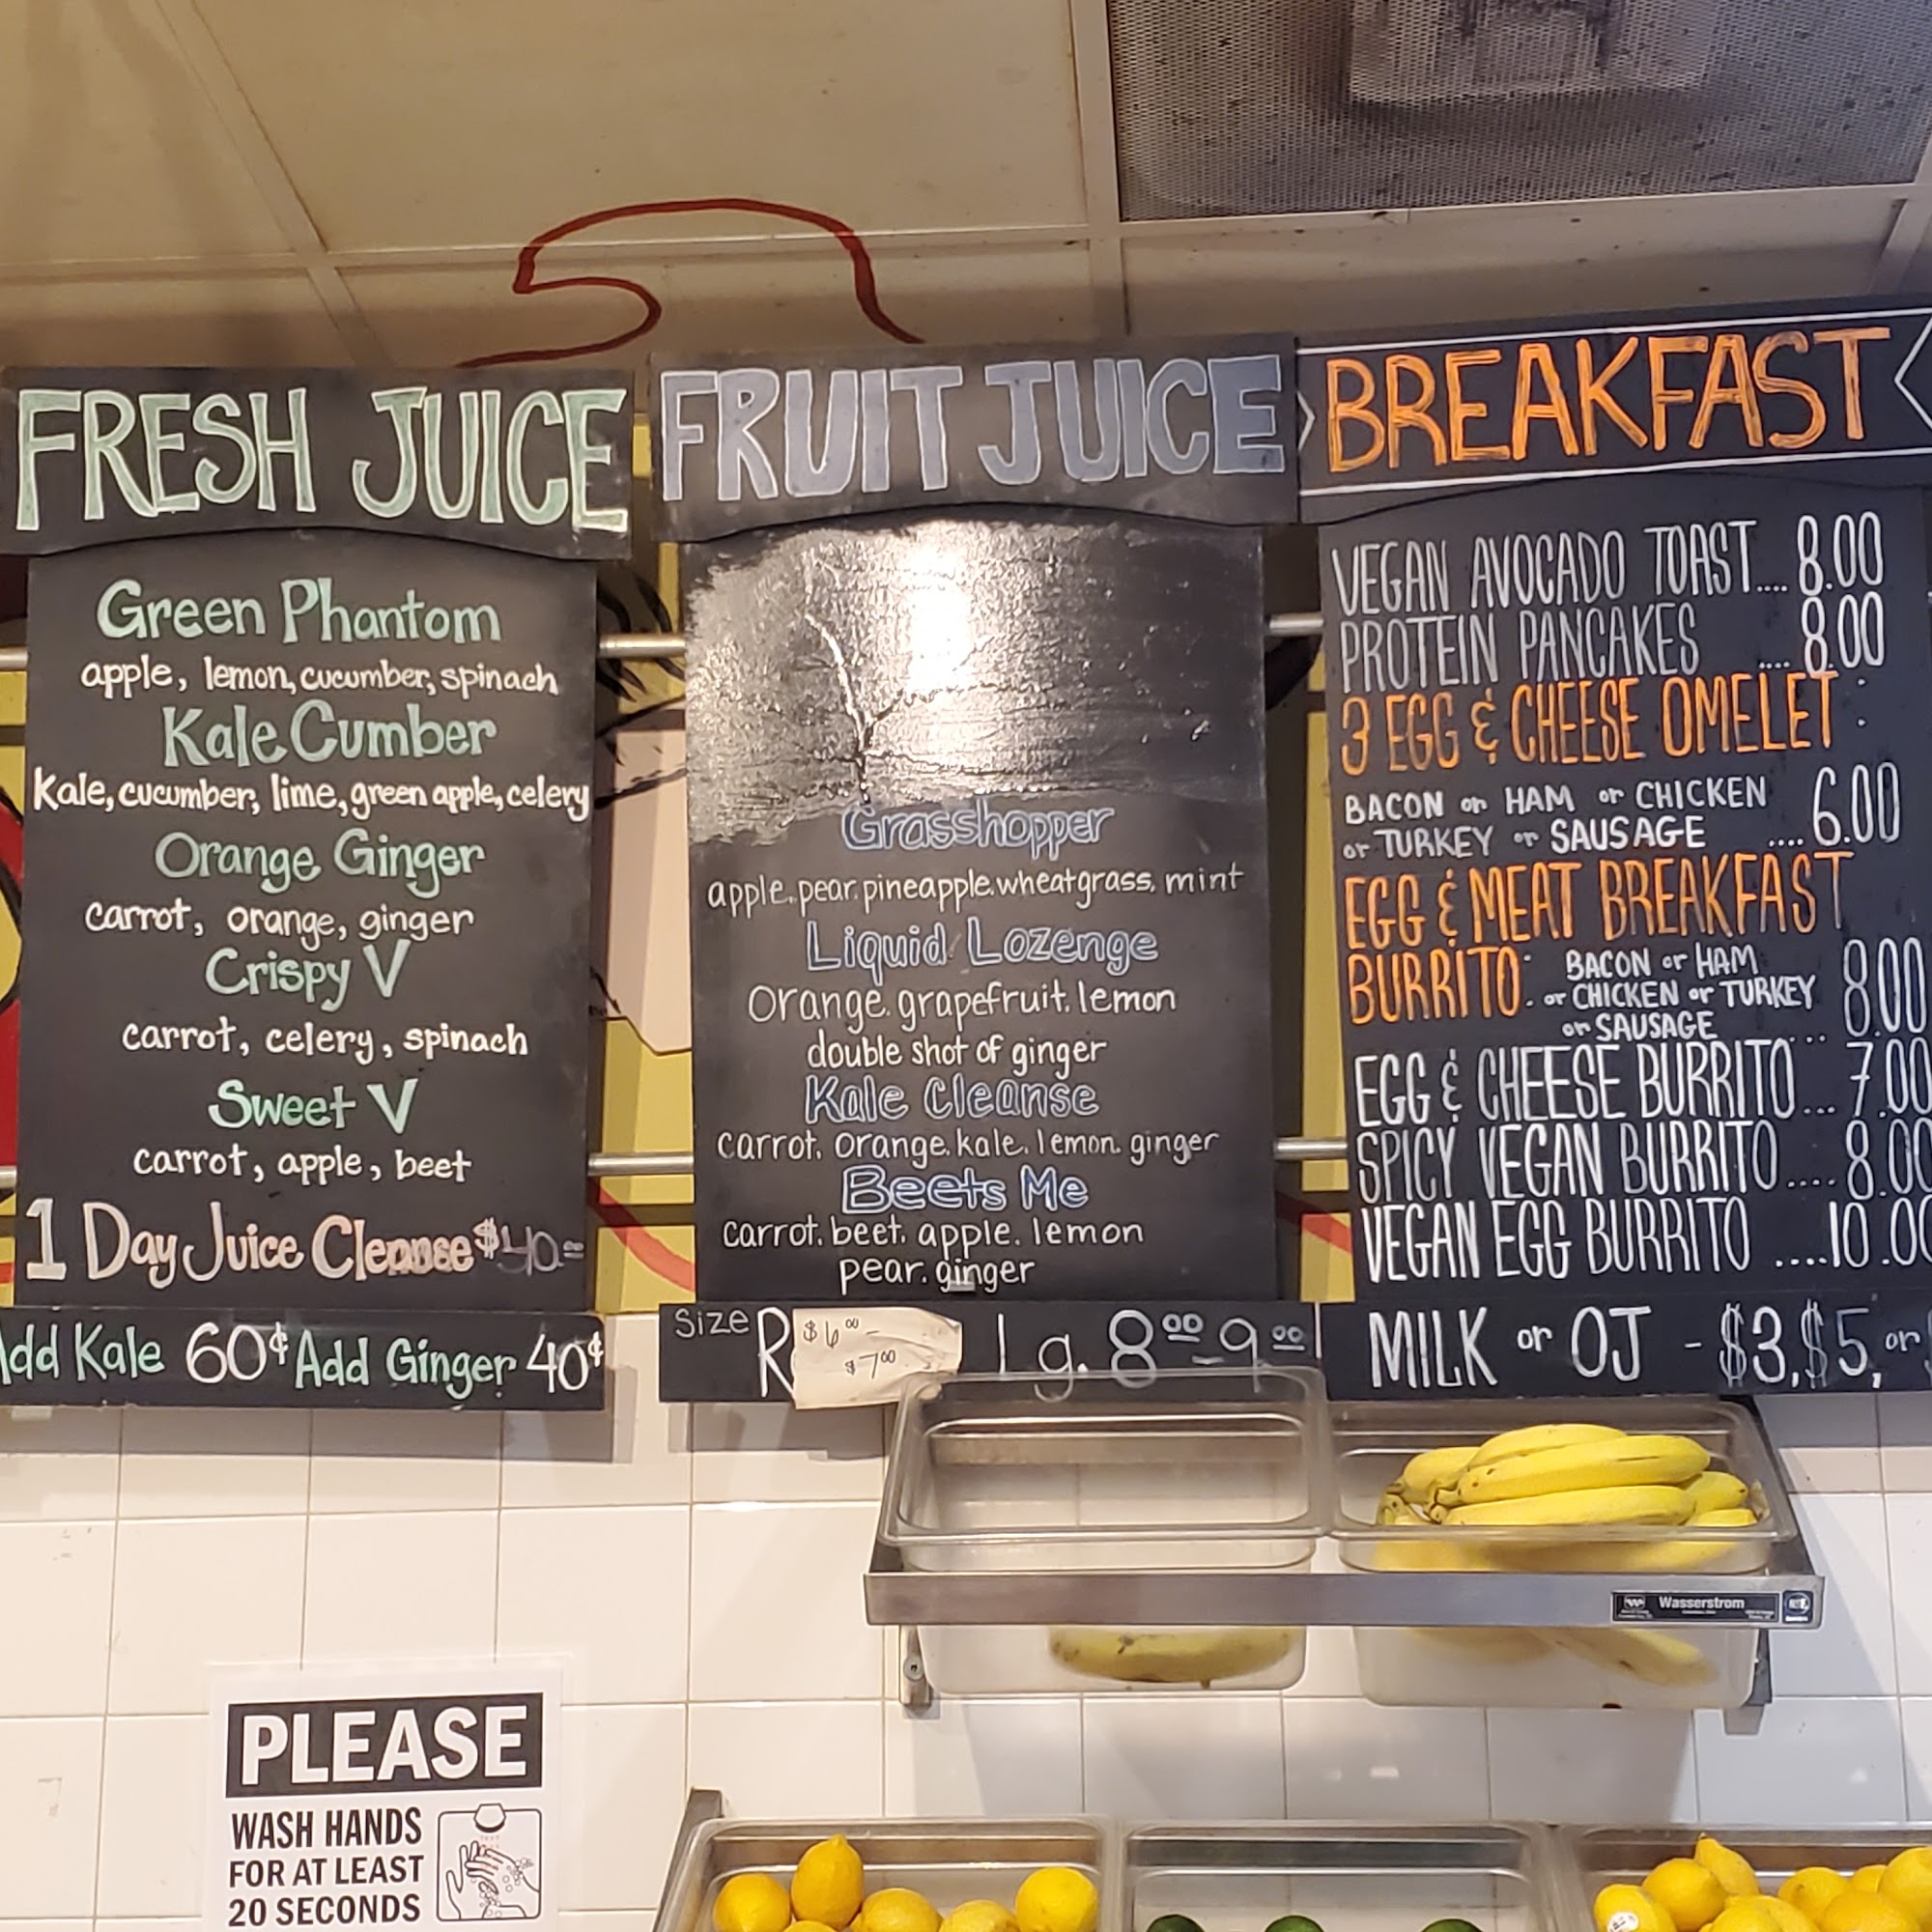 FRESH JUICE
Green Phantom
apple, lemon, cucumber, spinach
Kale Cumber
Kale, cucumber, lime, green apple, celery
Orange Ginger
carrot, orange, ginger
Crispy V
carrot, celery, spinach
Sweet V
carrot, apple, beet
1 Day Juice Cleanse $40.00
Add Kale 60¢ Add Ginger 40¢
FRUIT JUICE
Grasshopper
apple. pear. pineapple. wheatgrass. mint
Liquid Lozenge
Orange. grapefruit. lemon
double shot of ginger
Kale Cleanse
carrot. orange. kale. lemon. ginger
Beets Me
carrot. beet. apple. lemon
pear. ginger
Size R $6.00 - $7.00 lg. 8.00 - 9.00
BREAKFAST
VEGAN AVOCADO TOAST.... 8.00
PROTEIN PANCAKES .... 8.00
3 EGG & CHEESE OMELET :
BACON or HAM or CHICKEN
or TURKEY or SAUSAGE .... 6.00
EGG & MEAT BREAKFAST
BURRITO: BACON or HAM
or CHICKEN or TURKEY 8.00
or SAUSAGE ...
EGG & CHEESE BURRITO... 7.00
SPICY VEGAN BURRITO.... 8.00
VEGAN EGG BURRITO ....10.00
MILK or OJ - $3, $5, or
Wasserstrom
PLEASE
WASH HANDS
FOR AT LEAST
20 SECONDS